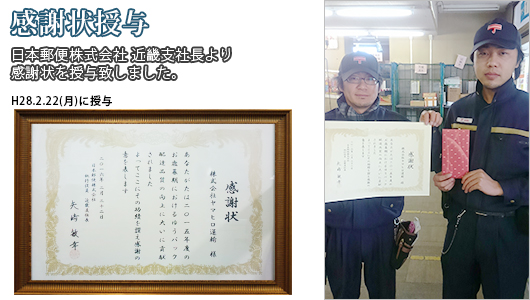 感謝状授与
日本郵便株式会社 近畿支社長より
感謝状を授与致しました。
H28.2.22(月)に授与
感謝状
株式会社ヤマヒロ運輸 様
あなたがたは二〇一五年度の
お歳暮期におけるゆうパック
配達品質の向上に大いに貢献
されました
よってここにその功績を讃え感謝の
意を表します
二〇一六年二月二十二日
日本郵便株式会社
矢崎 敏幸
感謝状